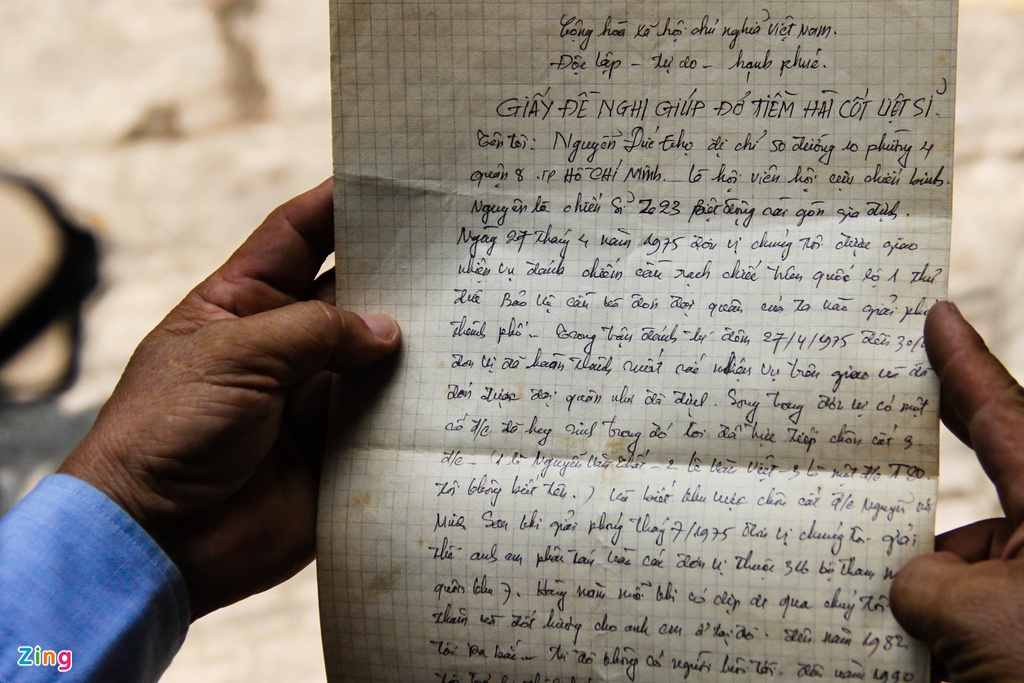 Cộng hòa xã hội chủ nghĩa Việt Nam.
Độc lập - tự do - hạnh phúc.
GIẤY ĐỀ NGHỊ GIÚP ĐỞ TIỀM HÀI CỐT LIỆT SĨ.
Tên tôi: Nguyễn Đức Thọ địa chỉ 50 đường 10 phường 4
quận 8 TP HỒ CHÍ MINH. Là hội viên hội cựu chiến binh.
Nguyên là chiến sĩ Z23 Biệt động sài gòn gia định.
Ngày 27 tháng 4 năm 1975 đơn vị chúng tôi được giao
nhiệm vụ đánh chiếm cầu rạch chiếc trên quốc lộ 1 thủ
đức Bảo vệ cầu và đón đại quân của ta vào giải phó
thành phố - Trong trận đánh từ đêm 27/4/1975 đến 30/
đơn vị đã hoàn thành xuất sắc nhiệm vụ trên giao và đã
đón được đại quân như đã định. Song trong đơn vị có một
số đ/c đã hy sinh trong đó tôi đã trực tiếp chôn cất 3
đ/c - (1 là Nguyễn Văn - 2 lê Văn Việt - 3 là một đ/c T80
tôi không biết tên.) và biết khu vực chôn cất đ/c Nguyễn
Sau khi giải phóng tháng 7/1975 đơn vị chúng tôi giải
thể anh em phân tán vào các đơn vị thuộc bộ tham
quân khu 7. Hàng năm mỗi khi có dịp đi qua chúng tôi
thăm và đốt hương cho anh em ở tại đó. đến năm 1982
tôi ra bắc - từ đó không có người đến năm 1990
Zing